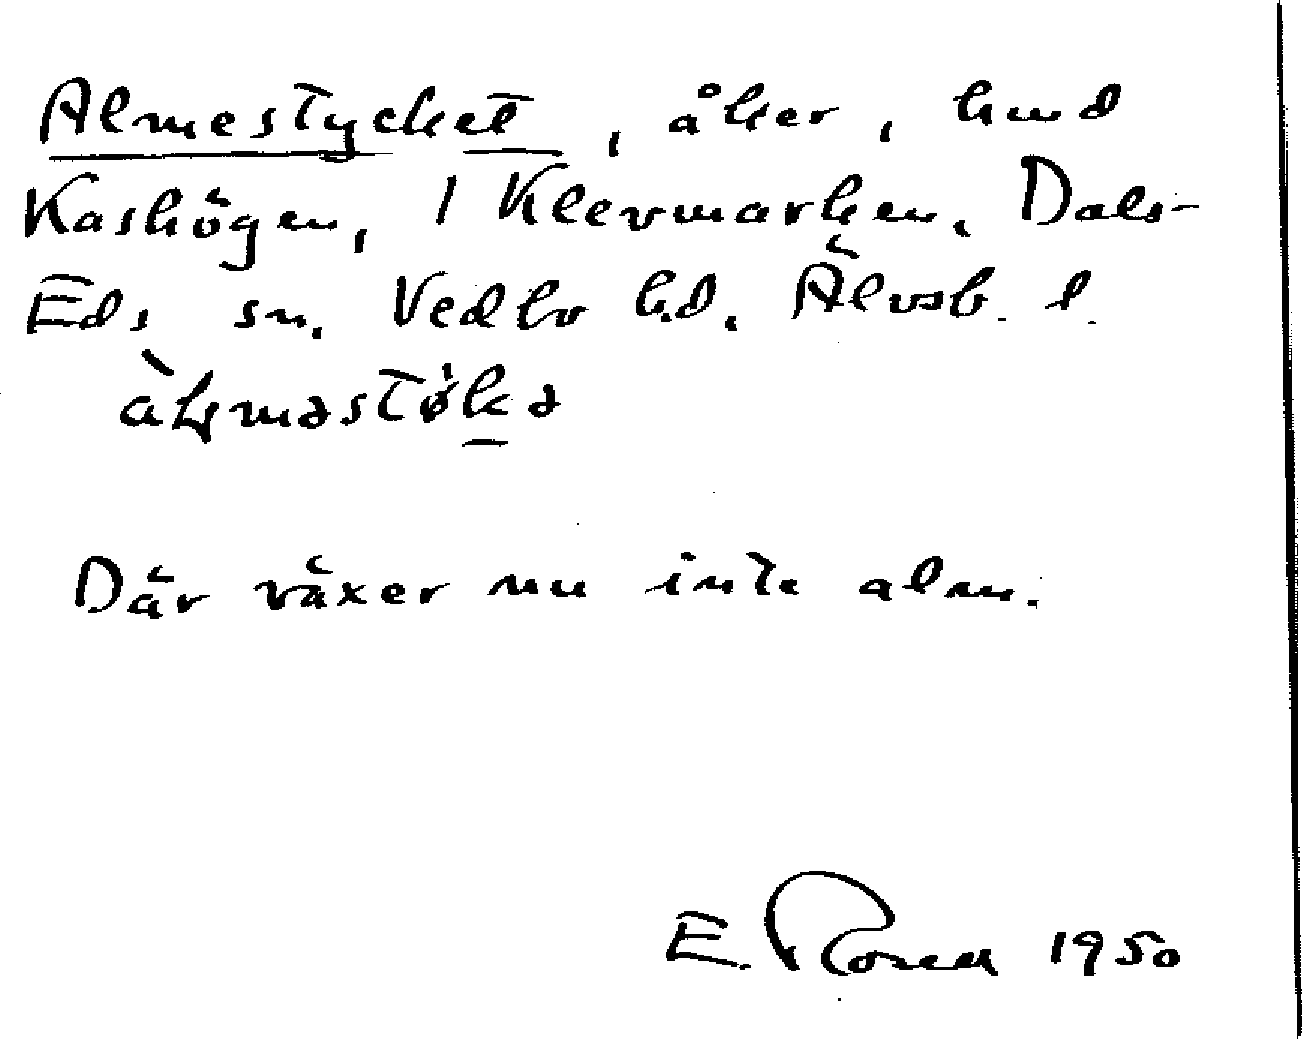 Almestycket, åker, hmd
Kashögen, 1 Klevmarken, Dals-
Eds sn, Vedbo hd, Älvsb. l.
Där växer nu inte alm.
E. Rosell 1950